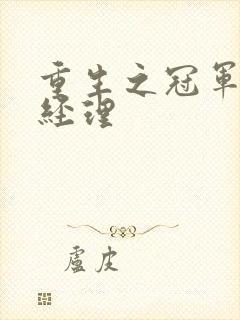 重生之冠軍
經理
盧皮